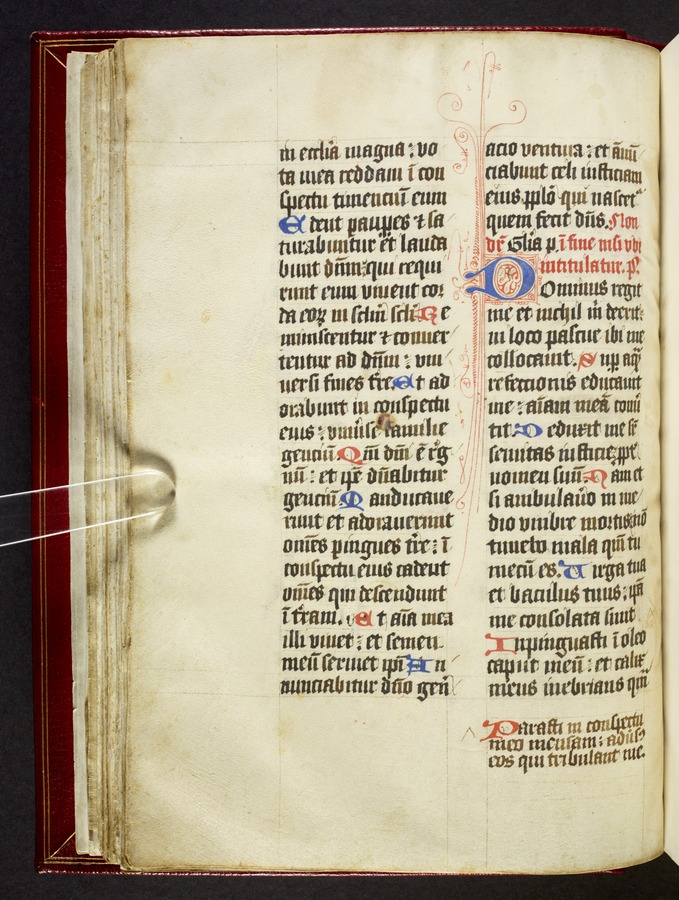 in eccl̄ia magna : vo
ta mea reddam ī con
spectu timenciū eum
Edent paup̄es ⁊ sa
turabuntur et lauda
bunt dn̄m : qui requi
runt eum viuent cor
da eoꝝ in sclm̄ scli̅ Re
miniscentur ⁊ conuer
tentur ad dn̄m : vni
uersi fines tr̄e Et ad
orabunt in conspectu
eius : vniūse familie
genciū Qm̄ dni̅ ē reg
nū : et ip̄e dn̄abitur
genciū Manducaue
runt et adorauerunt
om̄es pingues tr̄e : ī
conspectu eius cadent
om̄es qui descendunt
ī tr̄am . Et aīa mea
illi viuet : et semen
meū seruiet ipī An
nunciabitur dn̄o gen̄
acio ventura : et ān̄ū
ciabunt celi iusticiam
eius ppl̄o qui nascet᷑
quem fecit dn̄s . Non
dr̄ Gl̄ia p. ī fine nisi vbi
intitulatur . p̄s
Dominus regit
me et nichil m̄ deerit :
in loco pascue ibi me
collocauit . Sup̄ aq̄
refectionis educauit
me : aīam meā conū
tit Deduxit me sr̄
semitas iusticie : ppt̄
nomen suū . Nam et
si ambulau̅o in me
dio vmbre mortis : nō
timebo mala qm̄ tu
mecū es . Uirga tua
et baculus tuus : ip̄a
me consolata sunt
Inpinguasti ī oleo
caput meū : et calix
meus inebrians qm̄
Parasti in conspectu
meo mensam : adūs᷑
eos qui tribulant me .